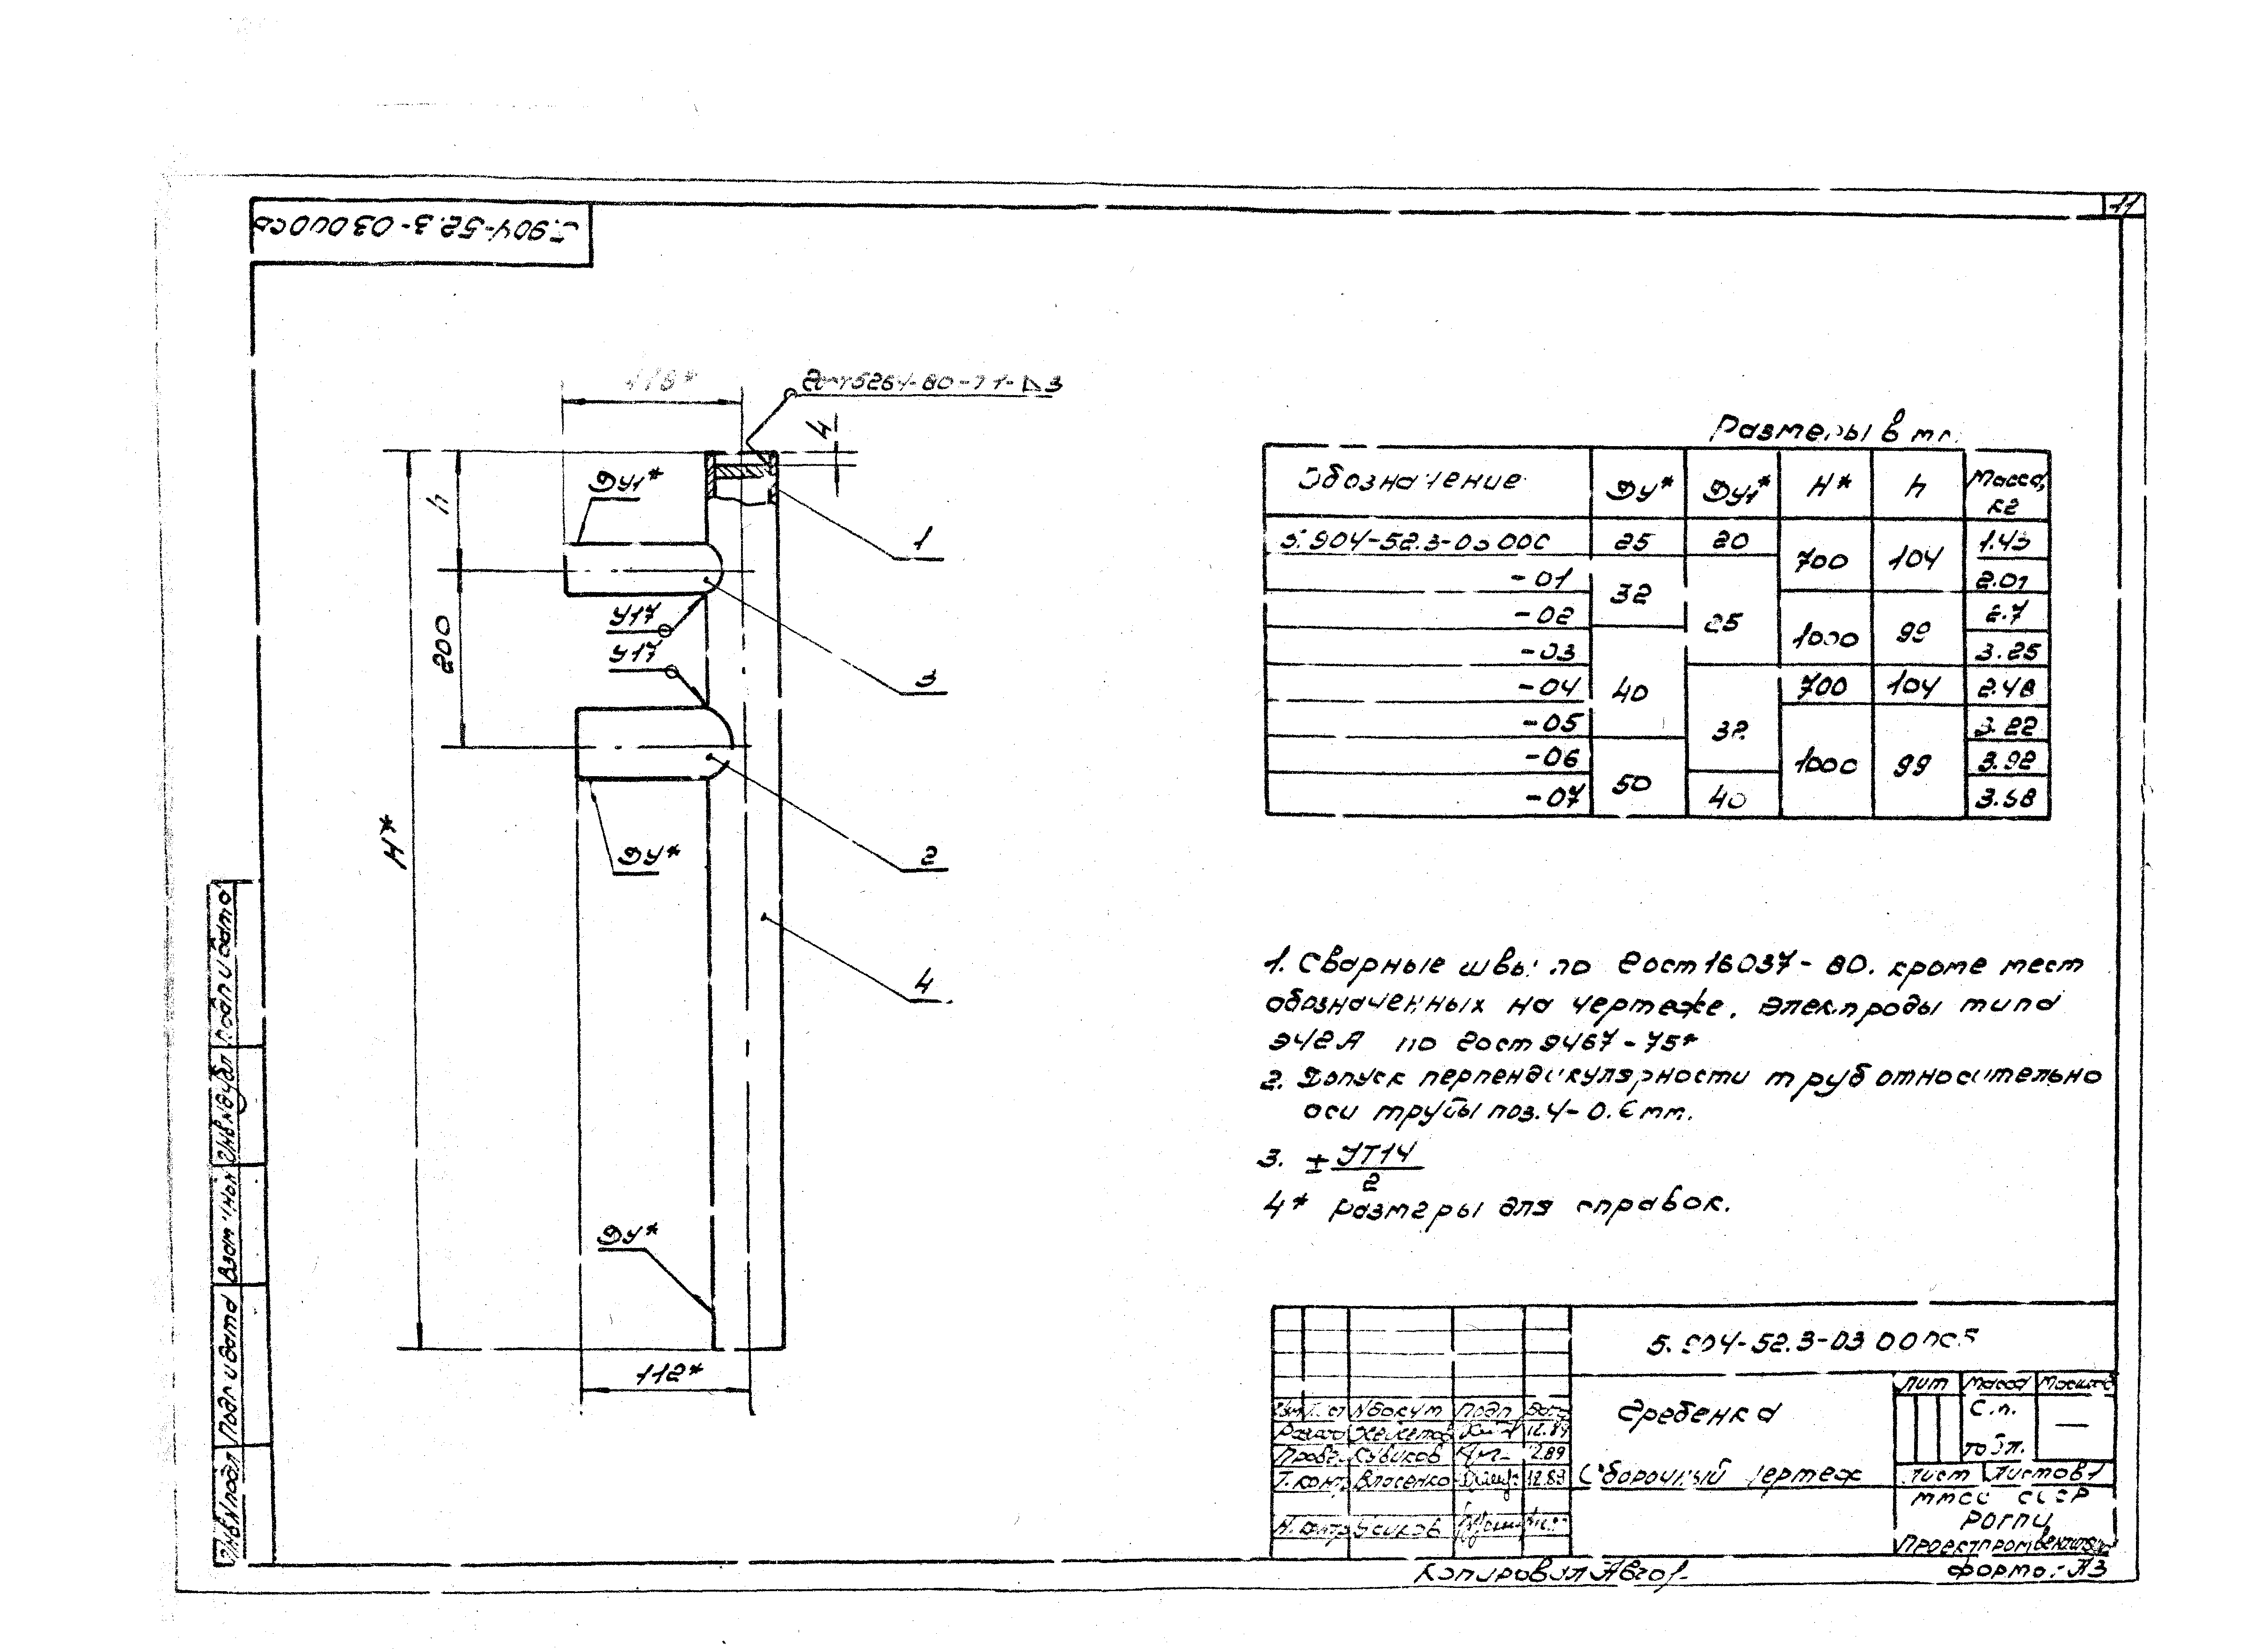 5.904-52.3-03 000СБ
11
118*
ГОСТ 5264-80-Т1-△3
4
h
Ду1*
1
У17
У17
200
3
H*
2
Ду*
4
Ду*
112*
Размеры в мм.
Обозначение Ду* Ду1* H* h Масса, кг
5.904-52.3-03 000 25 20 700 104 1.43
-01 32 25 2.01
-02 1000 99 2.7
-03 40 3.25
-04 32 700 104 2.48
-05 1000 99 3.22
-06 50 3.92
-07 40 3.58
1. Сварные швы по ГОСТ 16037-80. кроме мест
обозначенных на чертеже. Электроды типа
Э42А по ГОСТ 9467-75*
2. Допуск перпендикулярности труб относительно
оси трубы поз. 4-0.6 мм.
3. ± УТ14
2
4* Размеры для справок.
5.904-52.3-03 000СБ
Гребенка
Сборочный чертеж
Лит Масса Масштаб
С.п.
табл.
—
Лист Листов 1
ММСС СССР
РОГПИ
Проектпромвентиляция
Изм Лист № докум Подп Дата
Разраб 12.89
Пров. Кубиков 12.89
Т. контр Власенко 12.89
Н. контр Усиков
Копировал
Формат А3
Подп и дата
Инв № дубл
Взам инв №
Подп и дата
Инв № подл